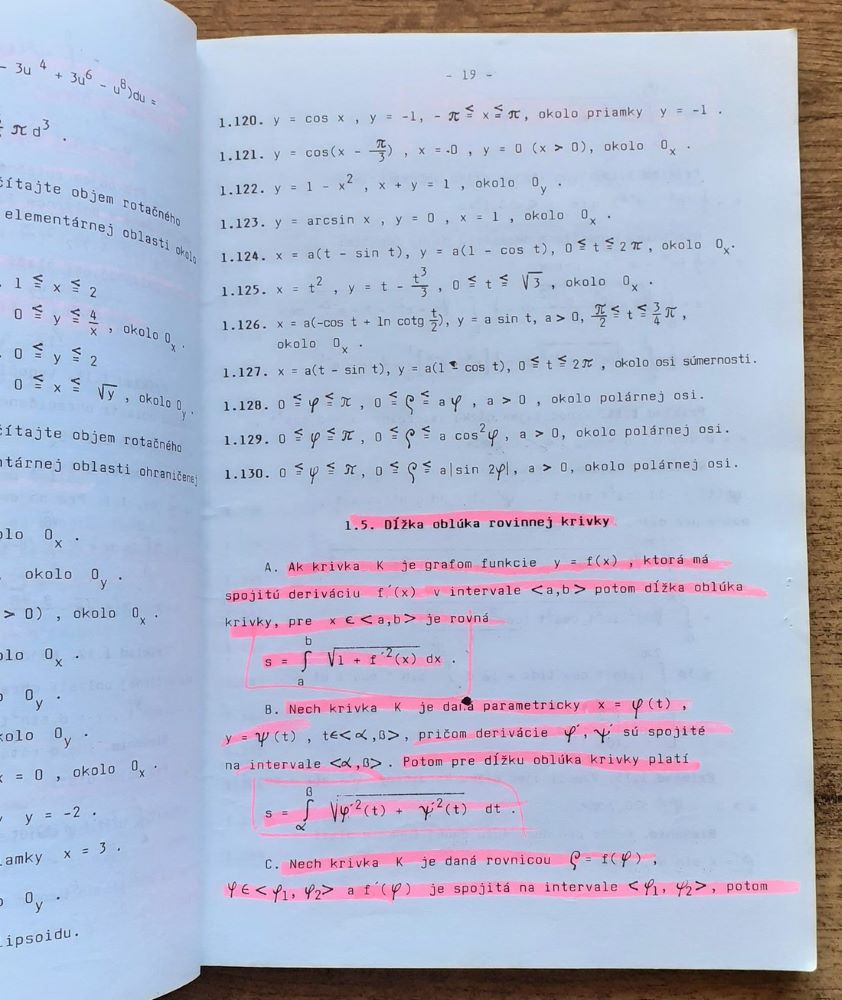 - 3u⁴ + 3u⁶ - u⁸)du =
π d³ .
čítajte objem rotačného
elementárnej oblasti okolo
1 ≦ x ≦ 2
0 ≦ y ≦ 4/x , okolo Oₓ .
0 ≦ y ≦ 2
0 ≦ x ≦ √y , okolo O_y .
čítajte objem rotačného
ntárnej oblasti ohraničenej
olo Oₓ .
okolo O_y .
> 0) , okolo Oₓ .
olo Oₓ .
O_y .
kolo O_y .
x = 0 , okolo Oₓ .
y = -2 .
iamky x = 3 .
O_y .
ipsoidu.
- 19 -
1.120. y = cos x , y = -1, - π ≦ x ≦ π, okolo priamky y = -1 .
1.121. y = cos(x - π/3) , x = 0 , y = 0 (x > 0), okolo Oₓ .
1.122. y = 1 - x² , x + y = 1 , okolo O_y .
1.123. y = arcsin x , y = 0 , x = 1 , okolo Oₓ .
1.124. x = a(t - sin t), y = a(1 - cos t), 0 ≦ t ≦ 2π , okolo Oₓ.
1.125. x = t² , y = t - t³/3 , 0 ≦ t ≦ √3 , okolo Oₓ .
1.126. x = a(-cos t + ln cotg t/2), y = a sin t, a > 0, π/2 ≦ t ≦ 3/4 π ,
okolo Oₓ .
1.127. x = a(t - sin t), y = a(1 - cos t), 0 ≦ t ≦ 2π , okolo osi súmernosti.
1.128. 0 ≦ φ ≦ π , 0 ≦ ϱ ≦ a φ , a > 0 , okolo polárnej osi.
1.129. 0 ≦ φ ≦ π, 0 ≦ ϱ ≦ a cos²φ , a > 0, okolo polárnej osi.
1.130. 0 ≦ φ ≦ π, 0 ≦ ϱ ≦ a|sin 2φ|, a > 0, okolo polárnej osi.
1.5. Dĺžka oblúka rovinnej krivky
A. Ak krivka K je grafom funkcie y = f(x) , ktorá má
spojitú deriváciu f´(x) v intervale <a,b> potom dĺžka oblúka
krivky, pre x ϵ <a,b> je rovná
s = ∫ₐᵇ √(1 + f´²(x)) dx .
B. Nech krivka K je daná parametricky x = φ(t) ,
y = ψ(t) , tϵ<α,ß> , pričom derivácie φ´, ψ´ sú spojité
na intervale <α,ß> . Potom pre dĺžku oblúka krivky platí
s = ∫_α^ß √(φ´²(t) + ψ´²(t)) dt .
C. Nech krivka K je daná rovnicou ϱ = f(φ) ,
φ ϵ <φ₁, φ₂> a f´(φ) je spojitá na intervale <φ₁, φ₂> , potom